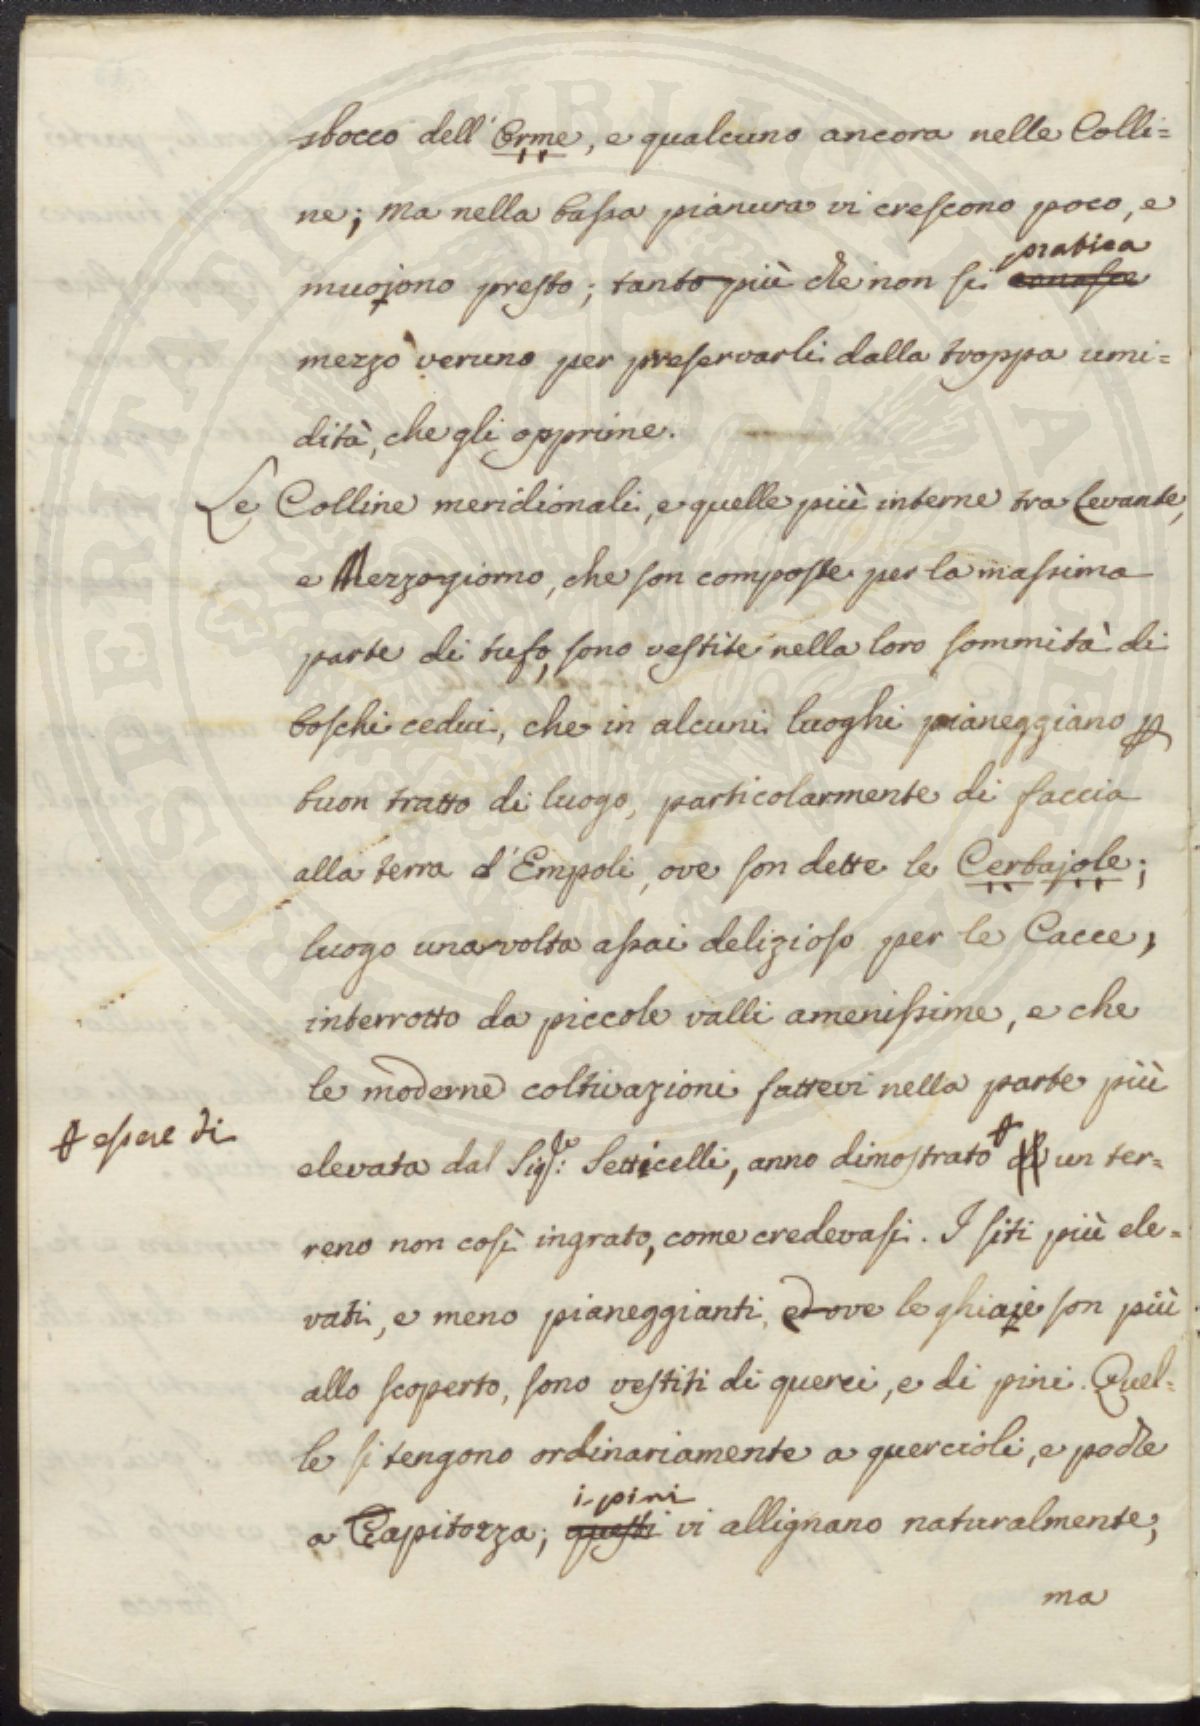 sbocco dell'Orme, e qualcuno ancora nelle Colli=
ne; ma nella bassa pianura vi crescono poco, e
pratica
muojono presto; tanto più che non si conosce
mezzo veruno per preservarli dalla troppa umi=
dità, che gli opprime.
Le Colline meridionali, e quelle più interne tra Levante,
e Mezzogiorno, che son composte per la massima
parte di tufo, sono vestite nella loro sommità di
boschi cedui, che in alcuni luoghi pianeggiano p
buon tratto di luogo, particolarmente di faccia
alla terra d'Empoli, ove son dette le Cerbajole;
luogo una volta assai delizioso per le Cacce,
interrotto da piccole valli amenissime, e che
le moderne coltivazioni fattevi nella parte più
essere di
elevata dal Sig.re: Setticelli, anno dimostrato un ter=
reno non così ingrato, come credevasi. I siti più ele=
vati, e meno pianeggianti, ed ove le ghiaje son più
allo scoperto, sono vestiti di querci, e di pini. Quel=
le si tengono ordinariamente a quercioli, e poche
i pini
a Capitozza; questi vi allignano naturalmente;
ma
POSPERITATI PUBLICAE AUGENDAE